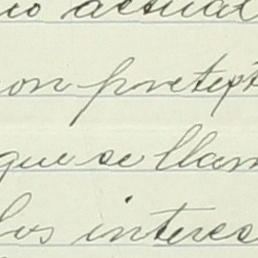 no actual
on pretext
que se llam
los interes